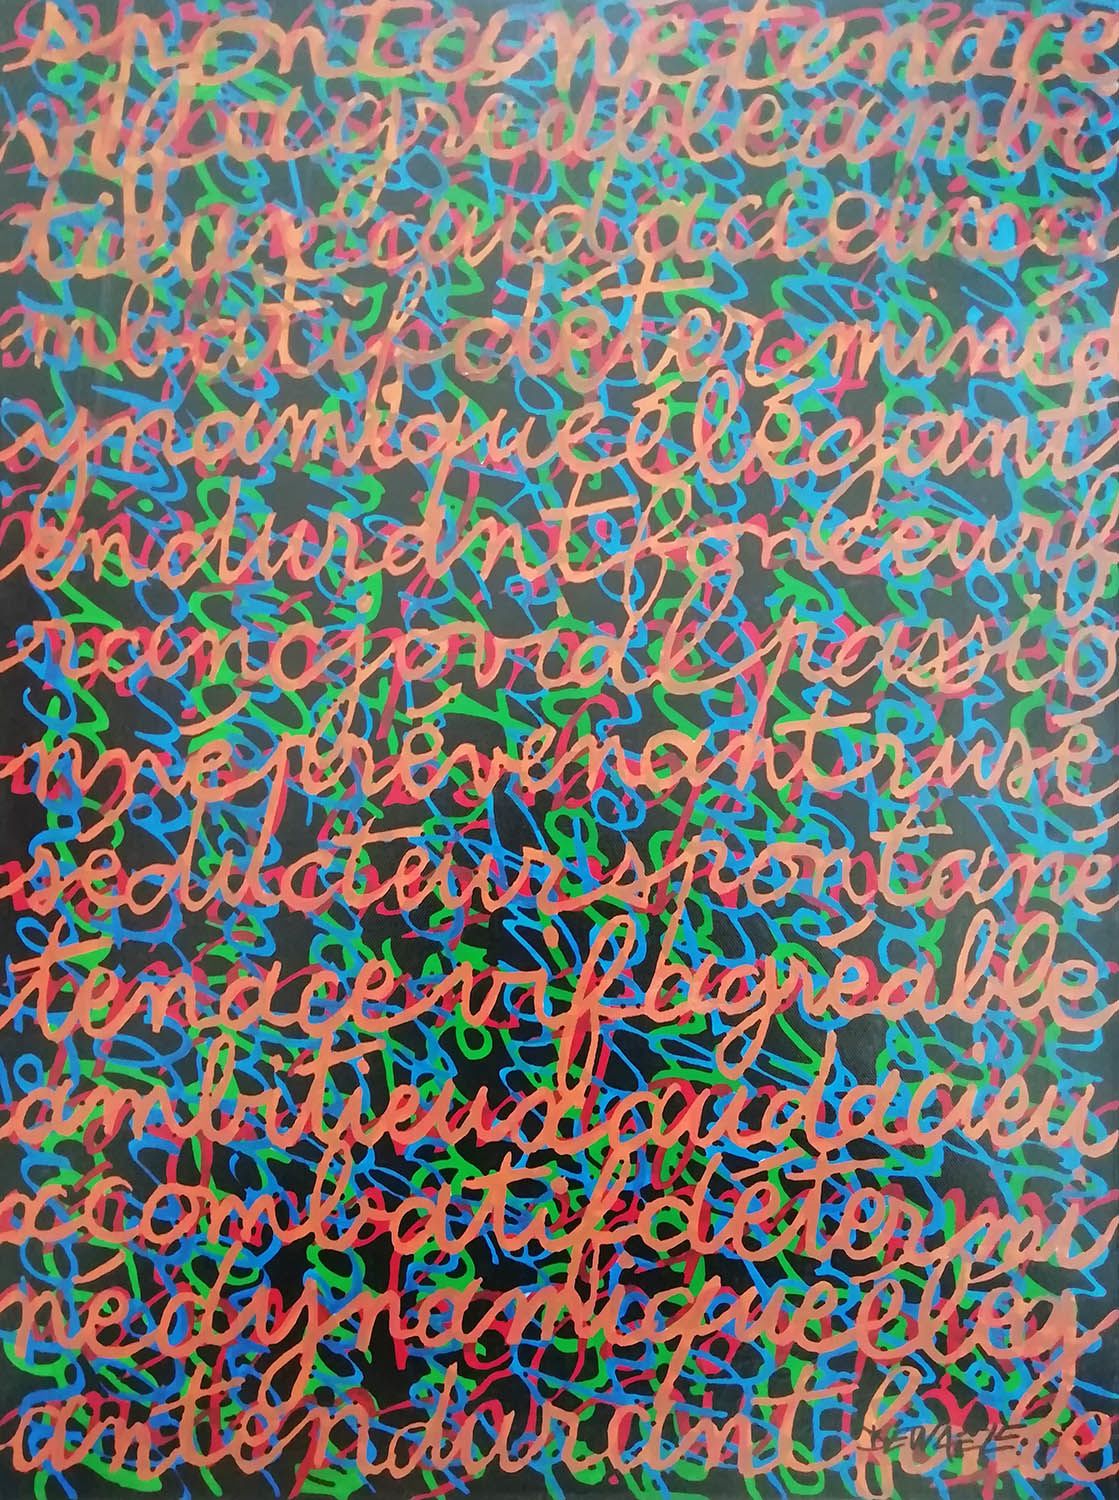 spontanétenace
vifagréableambi
tieuxaudacieuxc
mbatifdéterminéd
ynamiqueélégant
endurantfonceurf
rancjovialpassio
nnéprévenantrusé
séducteurspontané
tenacevifagréable
ambitieuxaudacieu
xcombatifdétermi
nédynamiqueélég
antendurantfonc